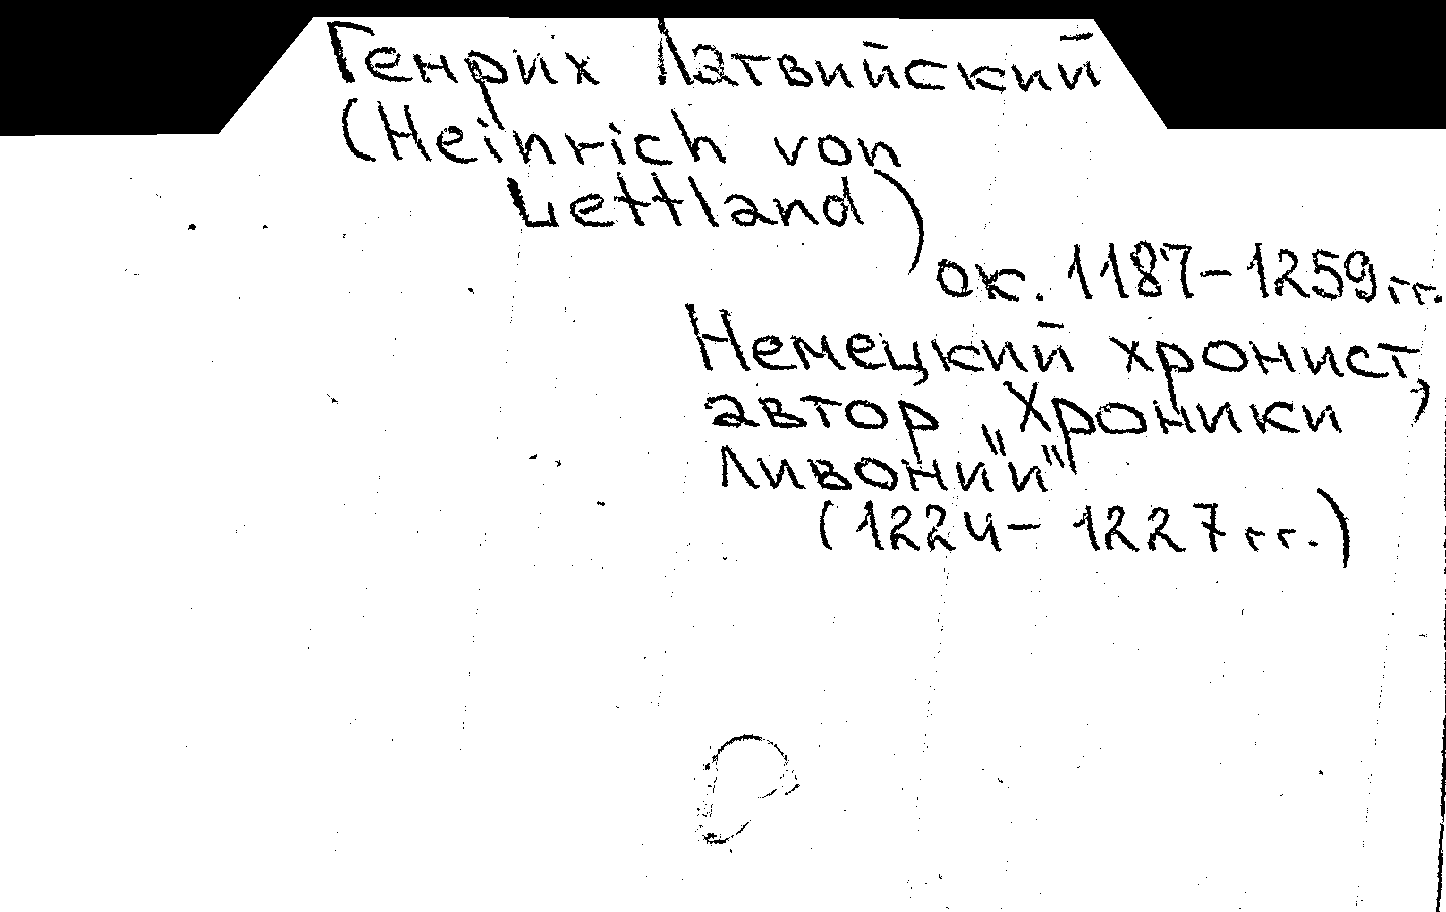 Генрих Латвийский
(Heinrich von
Lettland)
ок. 1187-1259 гг.
Немецкий хронист,
автор „Хроники
Ливонии"
(1224-1227 гг.)